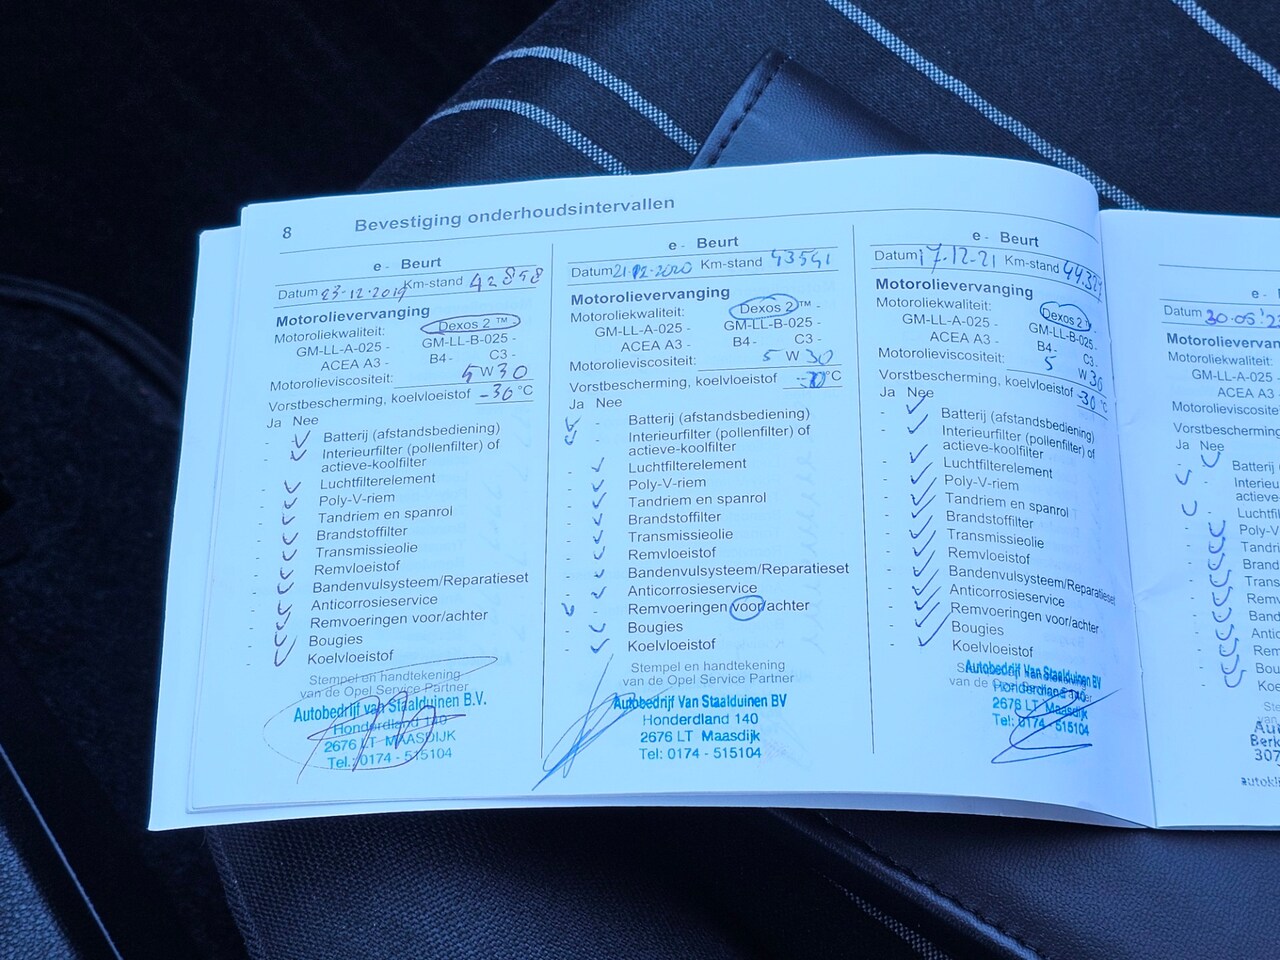 8 Bevestiging onderhoudsintervallen
e - Beurt
Datum 23-12-2019 Km-stand 42858
Motorolievervanging
Motoroliekwaliteit: Dexos 2 ™ -
GM-LL-A-025 - GM-LL-B-025 -
ACEA A3 - B4 - C3 -
Motorolieviscositeit: 5 W 30
Vorstbescherming, koelvloeistof -30 °C
Ja Nee
- Batterij (afstandsbediening)
- Interieurfilter (pollenfilter) of
actieve-koolfilter
- Luchtfilterelement
- Poly-V-riem
- Tandriem en spanrol
- Brandstoffilter
- Transmissieolie
- Remvloeistof
- Bandenvulsysteem/Reparatieset
- Anticorrosieservice
- Remvoeringen voor/achter
- Bougies
- Koelvloeistof
Stempel en handtekening
van de Opel Service Partner
Autobedrijf van Staalduinen B.V.
Honderdland 140
2676 LT MAASDIJK
Tel.: 0174 - 515104
e - Beurt
Datum 21-12-2020 Km-stand 43541
Motorolievervanging
Motoroliekwaliteit: Dexos 2 ™ -
GM-LL-A-025 - GM-LL-B-025 -
ACEA A3 - B4 - C3 -
Motorolieviscositeit: 5 W 30
Vorstbescherming, koelvloeistof °C
Ja Nee
- Batterij (afstandsbediening)
- Interieurfilter (pollenfilter) of
actieve-koolfilter
- Luchtfilterelement
- Poly-V-riem
- Tandriem en spanrol
- Brandstoffilter
- Transmissieolie
- Remvloeistof
- Bandenvulsysteem/Reparatieset
- Anticorrosieservice
- Remvoeringen voor/achter
- Bougies
- Koelvloeistof
Stempel en handtekening
van de Opel Service Partner
Autobedrijf Van Staalduinen BV
Honderdland 140
2676 LT Maasdijk
Tel: 0174 - 515104
e - Beurt
Datum 17-12-21 Km-stand
Motorolievervanging
Motoroliekwaliteit: Dexos 2 ™ -
GM-LL-A-025 - GM-LL-B-025 -
ACEA A3 - B4 - C3 -
Motorolieviscositeit: 5 W 30
Vorstbescherming, koelvloeistof -30 °C
Ja Nee
- Batterij (afstandsbediening)
- Interieurfilter (pollenfilter) of
actieve-koolfilter
- Luchtfilterelement
- Poly-V-riem
- Tandriem en spanrol
- Brandstoffilter
- Transmissieolie
- Remvloeistof
- Bandenvulsysteem/Reparatieset
- Anticorrosieservice
- Remvoeringen voor/achter
- Bougies
- Koelvloeistof
van de
Autobedrijf Van Staalduinen BV
Honderdland 140
2676 LT Maasdijk
Tel: 0174 - 515104
e -
Datum 30-05-
Motorolievervan
Motoroliekwaliteit:
GM-LL-A-025
ACEA A3 -
Motorolieviscositei
Vorstbescherming,
Ja Nee
- Batterij
- Interieu
actieve-
- Luchtfil
- Poly-V
- Tandri
- Brand
- Trans
- Remv
- Band
- Antic
- Rem
- Bou
- Koe
Ste
van
Berk
307
autokli